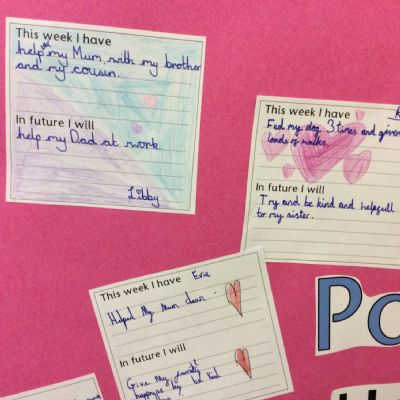 This week I have
helped my Mum with my brother
and my cousin.
In future I will
help my Dad at work.
Libby
This week I have
Fed my dog 3 times and given
loads of walks.
In future I will
Try and be kind and helpfull
to my sister.
This week I have Evie
Helped My Mum clean.
In future I will
Give my family
happiness by be kind
Po